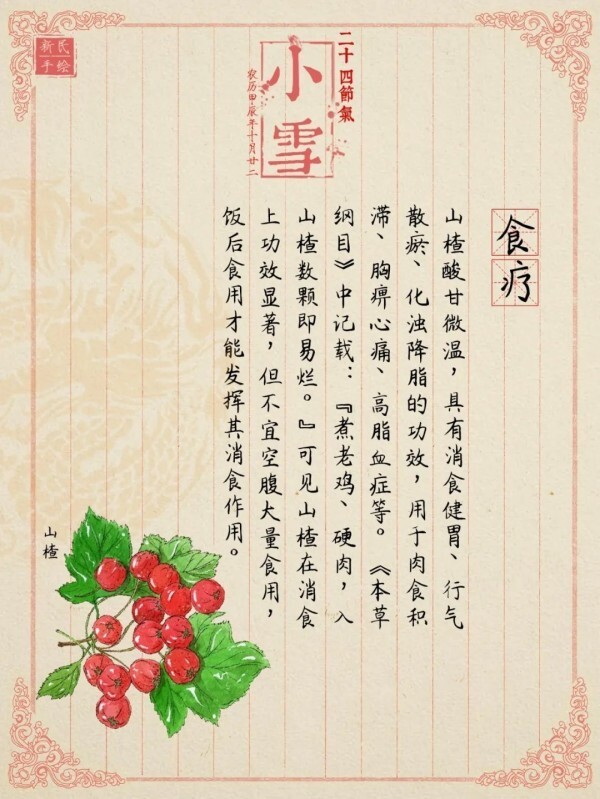 新民
手绘
二十四節氣
小雪
农历甲辰年十月廿二
食疗
山楂酸甘微温，具有消食健胃、行气
散瘀、化浊降脂的功效，用于肉食积
滞、胸痹心痛、高脂血症等。《本草
纲目》中记载：『煮老鸡、硬肉，入
山楂数颗即易烂。』可见山楂在消食
上功效显著，但不宜空腹大量食用，
饭后食用才能发挥其消食作用。
山楂